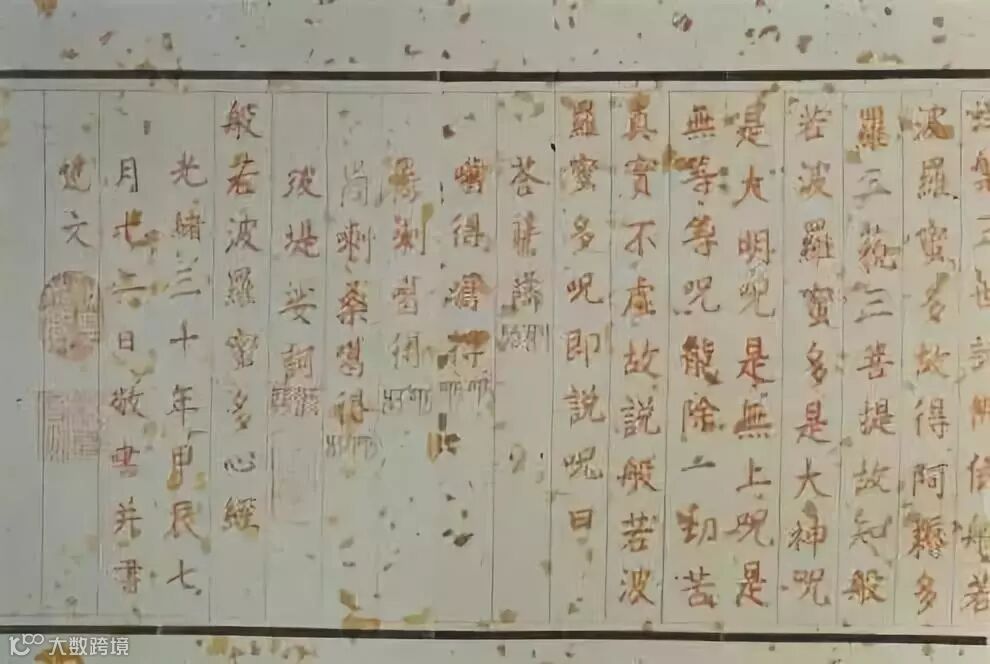 三世諸佛依般若
波羅蜜多故得阿耨多
羅三藐三菩提故知般
若波羅蜜多是大神呪
是大明呪是無上呪是
無等等呪能除一切苦
真實不虛故說般若波
羅蜜多呪即說呪曰
得 得
得
得
堤娑訶
般若波羅蜜多心經
光緒三十年甲辰七
月 日敬書并書
文
大数跨境